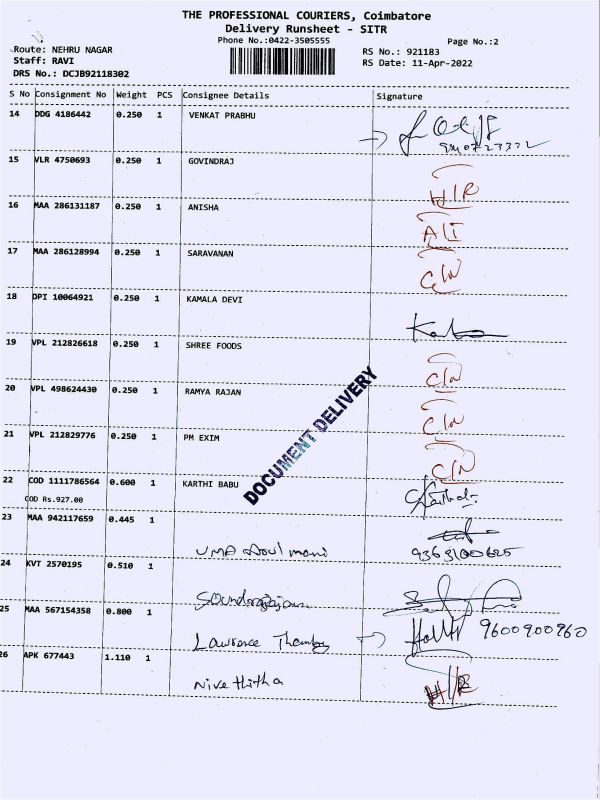 THE PROFESSIONAL COURIERS, Coimbatore
Delivery Runsheet - SITR
Phone No.:0422-3505555
Page No.:2
Route: NEHRU NAGAR
RS No.: 921183
Staff: RAVI
RS Date: 11-Apr-2022
DRS No.: DCJB92118302
S No Consignment No Weight PCS Consignee Details Signature
14 DDG 4186442 0.250 1 VENKAT PRABHU
15 VLR 4750693 0.250 1 GOVINDRAJ
H/R
16 MAA 286131187 0.250 1 ANISHA
17 MAA 286128994 0.250 1 SARAVANAN
18 DPI 10064921 0.250 1 KAMALA DEVI
19 VPL 212826618 0.250 1 SHREE FOODS
C/N
20 VPL 498624430 0.250 1 RAMYA RAJAN
C/N
21 VPL 212829776 0.250 1 PM EXIM
C/N
22 COD 1111786564 0.600 1 KARTHI BABU
COD Rs.927.00
DOCUMENT DELIVERY
23 MAA 942117659 0.445 1
UMA
24 KVT 2570195 0.510 1
25 MAA 567154358 0.800 1
Lawrence 9600900960
26 APK 677443 1.110 1
Nivethitha H/R